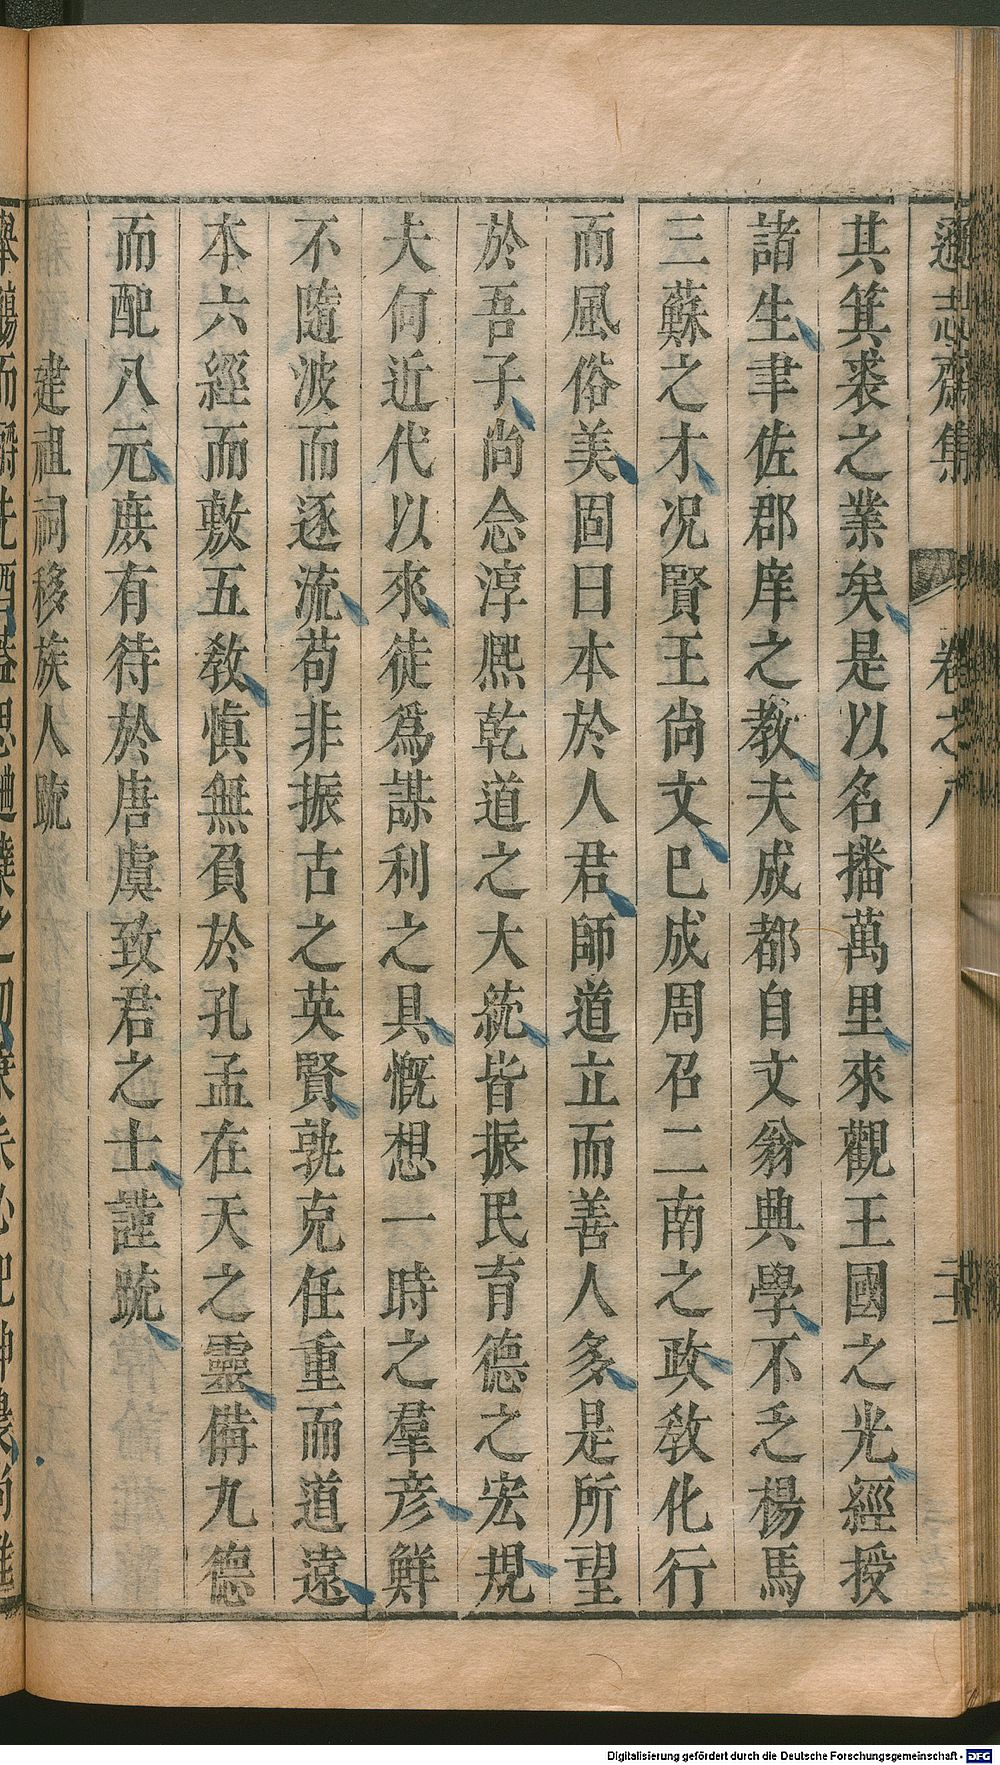 遜志齋集 卷之八 二十一
其箕裘之業矣是以名播萬里來觀王國之光經授
諸生聿佐郡庠之教夫成都自文翁典學不乏楊馬
三蘇之才况賢王尚文已成周召二南之政教化行
而風俗美固曰本於人君師道立而善人多是所望
於吾子尚念淳熈乾道之大統皆振民育德之宏規
夫何近代以來徒爲謀利之具慨想一時之羣彦鮮
不隨波而逐流苟非振古之英賢孰克任重而道遠
本六經而敷五教愼無負於孔孟在天之靈備九德
而配八元庶有待於唐虞致君之士謹疏
建祖祠移族人疏
Digitalisierung gefördert durch die Deutsche Forschungsgemeinschaft - DFG